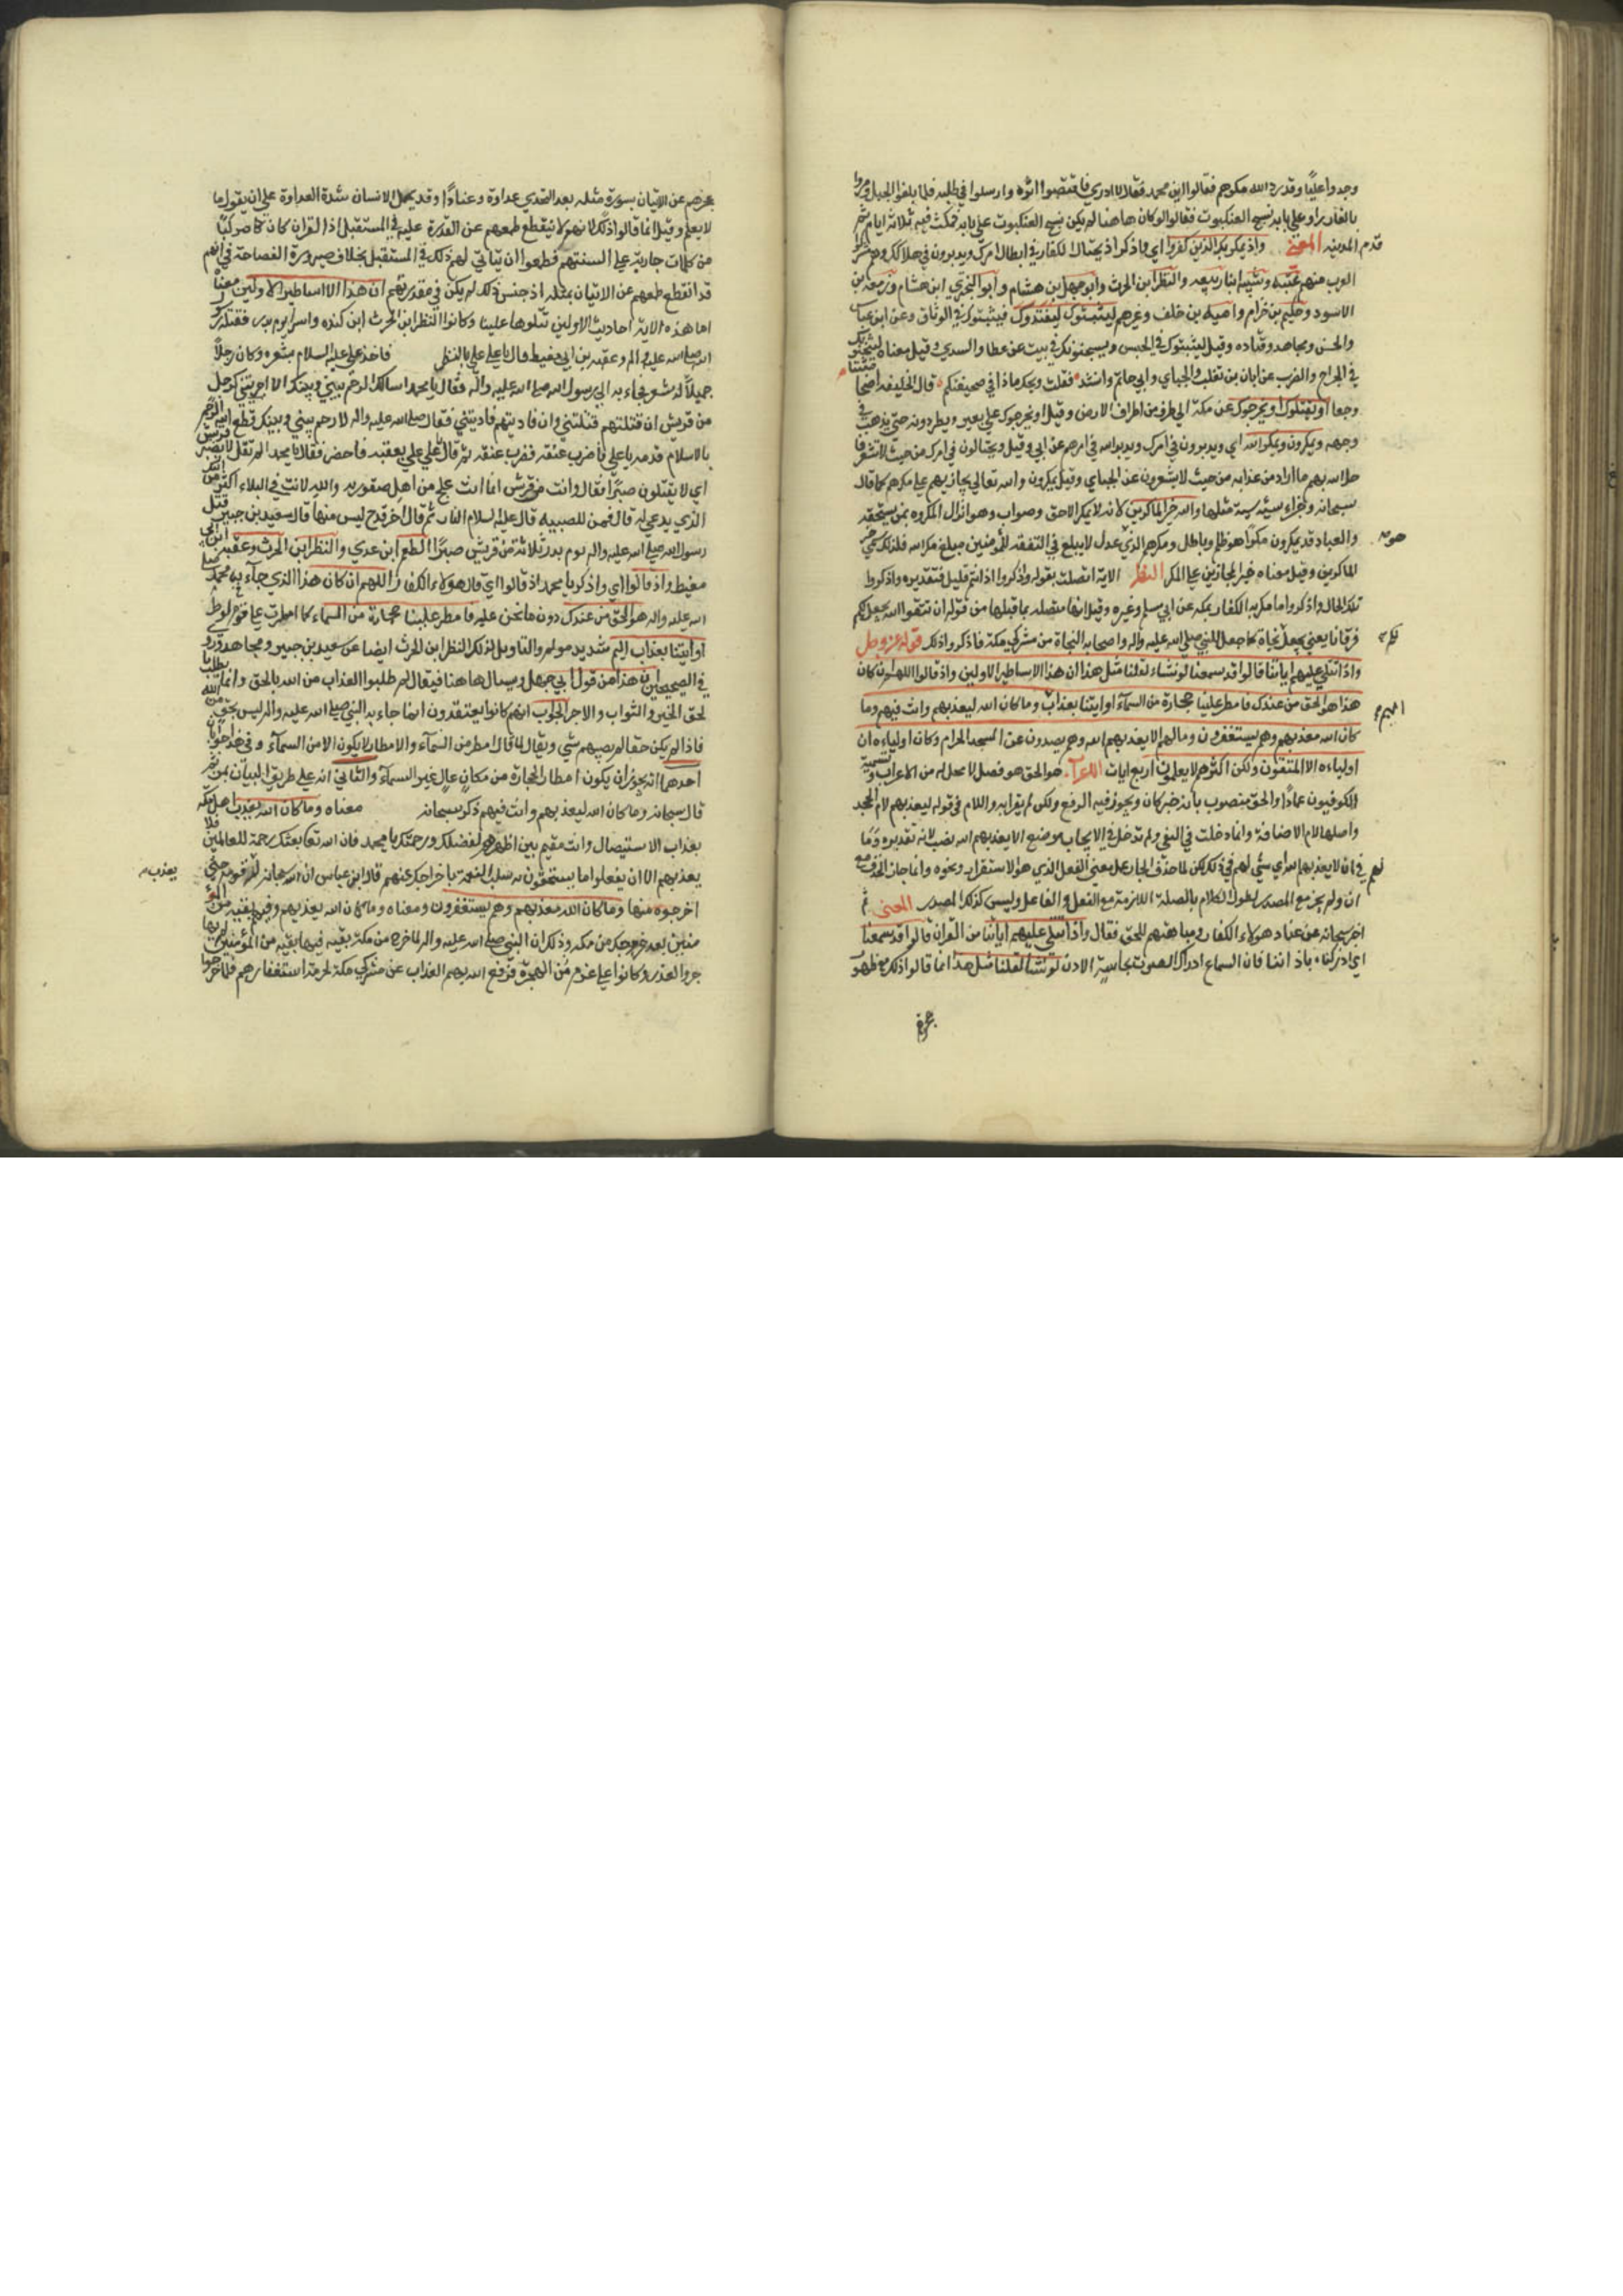 وجدوا عليًا وقد رد الله مكرهم فقالوا اين محمد فقال لا ادري فاقتصوا اثره وارسلوا في طلبه فلما بلغوا الجبل ومروا
بالغار راوا على بابه نسج العنكبوت فقالوا لو كان هاهنا لم يكن نسج العنكبوت على بابه فمكث فيه ثلاثة ايام ثم
قدم المدينه المعنى واذ يمكر بك الذين كفروا اي واذكر اذ يحتال الكفار في ابطال امرك ويدبرون في هلاكك وهم مشركوا
العرب منهم عتبه وشيبه ابنا ربيعه والنظر ابن الحرث وابو جهل بن هشام وابو البختري ابن هشام وزمعه بن
الاسود وحكيم بن حزام واميه بن خلف وغيرهم ليثبتوك ليقيدوك فيثبتوك في الوثاق وعن ابن عباس
والحسن ومجاهد وقتاده وقيل ليثبتوك في الحبس ويسجنونك في بيت عن عطا والسدي وقيل معناه ليثخنوك
في الجراح والضرب عن ابان بن تغلب والجبائي وابي حاتم وانشد فقلت ويحكم ماذا في صحيفتكم قال الخليفه اضحى مثبتا
وجعا او يقتلوك او يخرجوك عن مكة الى طرف من اطراف الارض وقيل او يخرجوك على بعير ويطردونه حتى يذهب في
وجهه ويمكرون ويمكر الله اي ويدبرون في امرك ويدبر الله في امرهم عن ابي وقيل ويحتالون في امرك من حيث لا تشعر فا
حل الله بهم ما اراد من عذابه من حيث لا يشعرون عن الجبائي وقيل يمكرون والله تعالى يجازيهم على مكرهم كما قال
سبحانه وجزاء سيئه سيئة مثلها والله خير الماكرين لانه لا يمكر الا حق وصواب وهو انزال المكروه بمن يستحقه
والعباد قد يمكرون مكرًا هو ظلم وباطل ومكرهم الذي عدل لا يبلغ في المنفعه للمؤمنين مبلغ مكر الله فلذلك هو خير
الماكرين وقيل معناه خير المجازين على المكر النظر الاية اتصلت بقوله واذكروا اذ انتم قليل فتقديره واذكروا
تلك الحال واذكروا ما مكر به الكفار بمكه عن ابي مسلم وغيره وقيل انها متصله بما قبلها من قوله ان تتقوا الله يجعل لكم
فرقانا يعني يجعل نجاة كما جعل للنبي صلى الله عليه واله واصحابه النجاة من مشركي مكة فاذكروا ذلك قوله عز وجل
واذا تتلى عليهم اياتنا قالوا قد سمعنا لو نشاء لقلنا مثل هذا ان هذا الا اساطير الاولين واذ قالوا اللهم ان كان
هذا هو الحق من عندك فامطر علينا حجارة من السماء او ايتنا بعذاب وما كان الله ليعذبهم وانت فيهم وما
كان الله معذبهم وهم يستغفرون وما لهم الا يعذبهم الله وهم يصدون عن المسجد الحرام وما كانوا اولياءه ان
اولياءه الا المتقون ولكن اكثرهم لا يعلمون اربع ايات الاعراب هو الحق هو فصل لا محل له من الاعراب وتسميه
الكوفيون عمادًا والحق منصوب بانه خبر كان ويجوز فيه الرفع ولكن لم يقرا به واللام في قوله ليعذبهم لام الجحد
واصلها لام الاضافة وانما دخلت في النفي ولم تدخل في الايجاب موضع الا يعذبهم الله نصب لانه تقديره وما
لهم في ان لا يعذبهم الله اي شي لهم في ذلك لكن لما حذف الجار عمل معنى الفعل الذي هو الاستقرار ونحوه وانما جاز الحذف مع
ان ولم يجز مع المصدر لطول الكلام بالصلة اللازمة مع الفعل والفاعل وليس كذلك المصدر المعنى ثم
اخبر سبحانه عن عناد هولاء الكفار ومباهتهم للحق فقال واذا تتلى عليهم اياتنا من القران قالوا قد سمعنا
اي ادركنا باذاننا فان السماع ادراك الصوت بحاسة الاذن لو نشا لقلنا مثل هذا انما قالوا ذلك مع ظهور
عجزهم
عجزهم عن الاتيان بسورة مثله بعد التحدي عداوة وعنادًا وقد يحمل الانسان شدة العداوة على ان يقول ما
لا يعلم وقيل انما قالوا ذلك لانهم لا ينقطع طمعهم عن القدرة عليه في المستقبل اذ القران كان كاصركبا
من كلمات جارية على السنتهم فطمعوا ان يتاتى لهم ذلك في المستقبل بخلاف صيرورة الفصاحة في انهم
قد انقطع طمعهم عن الاتيان بمثله اذ جنس ذلك لم يكن في مقدرتهم ان هذا الا اساطير الاولين معناه
اما هذه الاية احاديث الاولين تتلوها علينا وكانوا النظر ابن الحرث ابن كنده واسر يوم بدر فقتله رسول
الله صلى الله عليه واله وعقبه بن ابي معيط قال يا علي علي بالنظر فاخذ علي عليه السلام بشعره وكان رجلاً
جميلاً له شعر فجاء به الى رسول الله صلى الله عليه واله فقال يا محمد اسالك الرحم بيني وبينك الا اجريتني كرجل
من قريش ان قتلتهم قتلتني وان فاديتهم فاديتني فقال صلى الله عليه واله لا رحم بيني وبينك قطع الله الرحم
بالاسلام قدمه يا علي فاضرب عنقه فضرب عنقه ثم قال علي علي بعقبه فاحضر فقال يا محمد الم تقل لا تصبر قريش
اي لا يقتلون صبرًا فقال وانت من قريش انما انت علج من اهل صفوريه والله لانت في البلاء اكثر من
الذي يدعى له قال فمن للصبيه قال عليه السلام النار ثم قال اخر قدح ليس منها قال سعيد بن جبير قتل
رسول الله صلى الله عليه واله يوم بدر ثلاثة من قريش صبرًا المطعم ابن عدي والنظر ابن الحرث وعقبه ابن ابي
معيط واذ قالوا اي واذكر يا محمد اذ قالوا اي قال هولاء الكفار اللهم ان كان هذا الذي جاء به محمد صلى
الله عليه واله هو الحق من عندك دون ما نحن عليه فامطر علينا حجارة من السماء كما امطرت على قوم لوط
او ايتنا بعذاب اليم شديد مولم والقايل لذلك النظر ابن الحرث ايضا عن سعيد بن جبير ومجاهد وروي
في الصحيحين ان هذا من قول ابي جهل ويسال هاهنا فيقال لم طلبوا العذاب من الله بالحق وانما يطلب با
لحق الخير والثواب والاجر الجواب انهم كانوا يعتقدون ان ما جاء به النبي صلى الله عليه واله ليس بحق من الله
فاذا لم يكن حقا لم يصبهم شي ويقال لم قال امطر من السماء والامطار لا يكون الا من السماء وفي هذا جوابان
احدهما انه يجوز ان يكون امطار الحجارة من مكان عال غير السماء والثاني انه على طريق البيان بمن ثم
قال سبحانه وما كان الله ليعذبهم وانت فيهم ذكر سبحانه معناه وما كان الله يعذب اهل مكة
بعذاب الاستيصال وانت مقيم بين اظهرهم لفضلك ورحمتك يا محمد فان الله تعا بعثك رحمة للعالمين فلا
يعذبهم الا ان يفعلوا ما يستحقون به سلب النعمة باخراجك عنهم قال ابن عباس ان الله سبحانه لم يعذب قومه حتى
اخرجوه منها وما كان الله معذبهم وهم يستغفرون ومعناه وما كان الله يعذبهم وفيهم بقية من المؤ
منين بعد خروجك من مكه وذلك ان النبي صلى الله عليه واله لما خرج من مكه بقيت فيها بقيه من المؤمنين لم يها
جروا لعذر وكانوا على عزم من الهجرة فرفع الله بهم العذاب عن مشركي مكة لحرمة استغفارهم فلما خرجوا